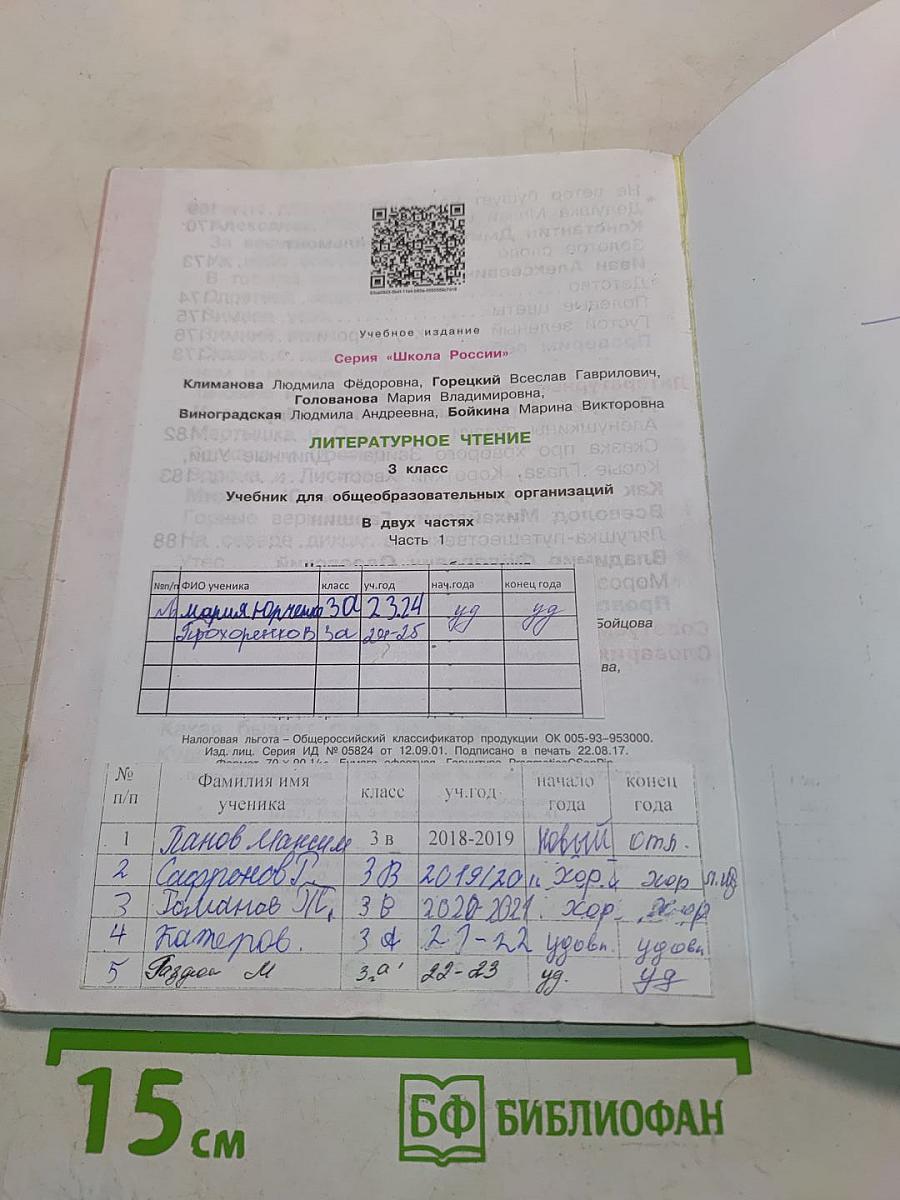 Учебное издание
Серия «Школа России»
Климанова Людмила Фёдоровна, Горецкий Всеслав Гаврилович,
Голованова Мария Владимировна,
Виноградская Людмила Андреевна, Бойкина Марина Викторовна
ЛИТЕРАТУРНОЕ ЧТЕНИЕ
3 класс
Учебник для общеобразовательных организаций
В двух частях
Часть 1
№п/п ФИО ученика класс уч.год нач.года конец года
Мария Юрченко 3а 23.24 уд уд
Прохоренков 3а 24-25
Бойцова
ва,
Налоговая льгота – Общероссийский классификатор продукции ОК 005-93–953000.
Изд. лиц. Серия ИД № 05824 от 12.09.01. Подписано в печать 22.08.17.
№ п/п Фамилия имя ученика класс уч.год начало года конец года
1 Панов Максим 3 в 2018-2019 новый отл.
2 Сафронов Г. 3 В 2019/20 хор. хор
3 Романов 3 В 2020-2021. хор. хор
4 Катеров. 3 А 21-22 удовл. удовл
5 М 3 "а" 22-23 уд. уд
15 см
БФ БИБЛИОФАН